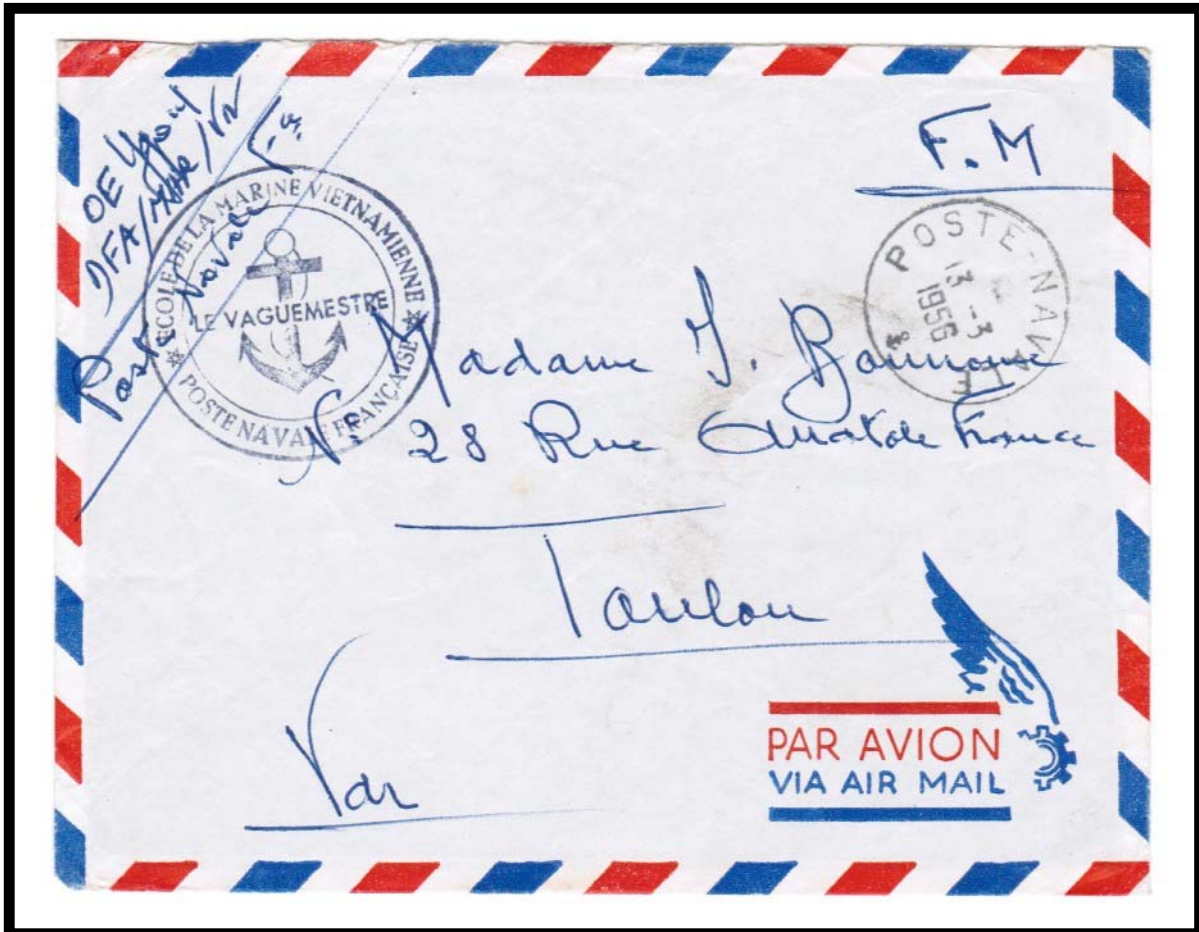 OE
DFA/MAR/VN
Poste Navale
F.M
ÉCOLE DE LA MARINE VIETNAMIENNE
LE VAGUEMESTRE
★ POSTE NAVALE FRANÇAISE ★
POSTE-NAVALE
13-3
1956
Madame J.
N° 28 Rue Anatole France
Toulon
Var
PAR AVION
VIA AIR MAIL